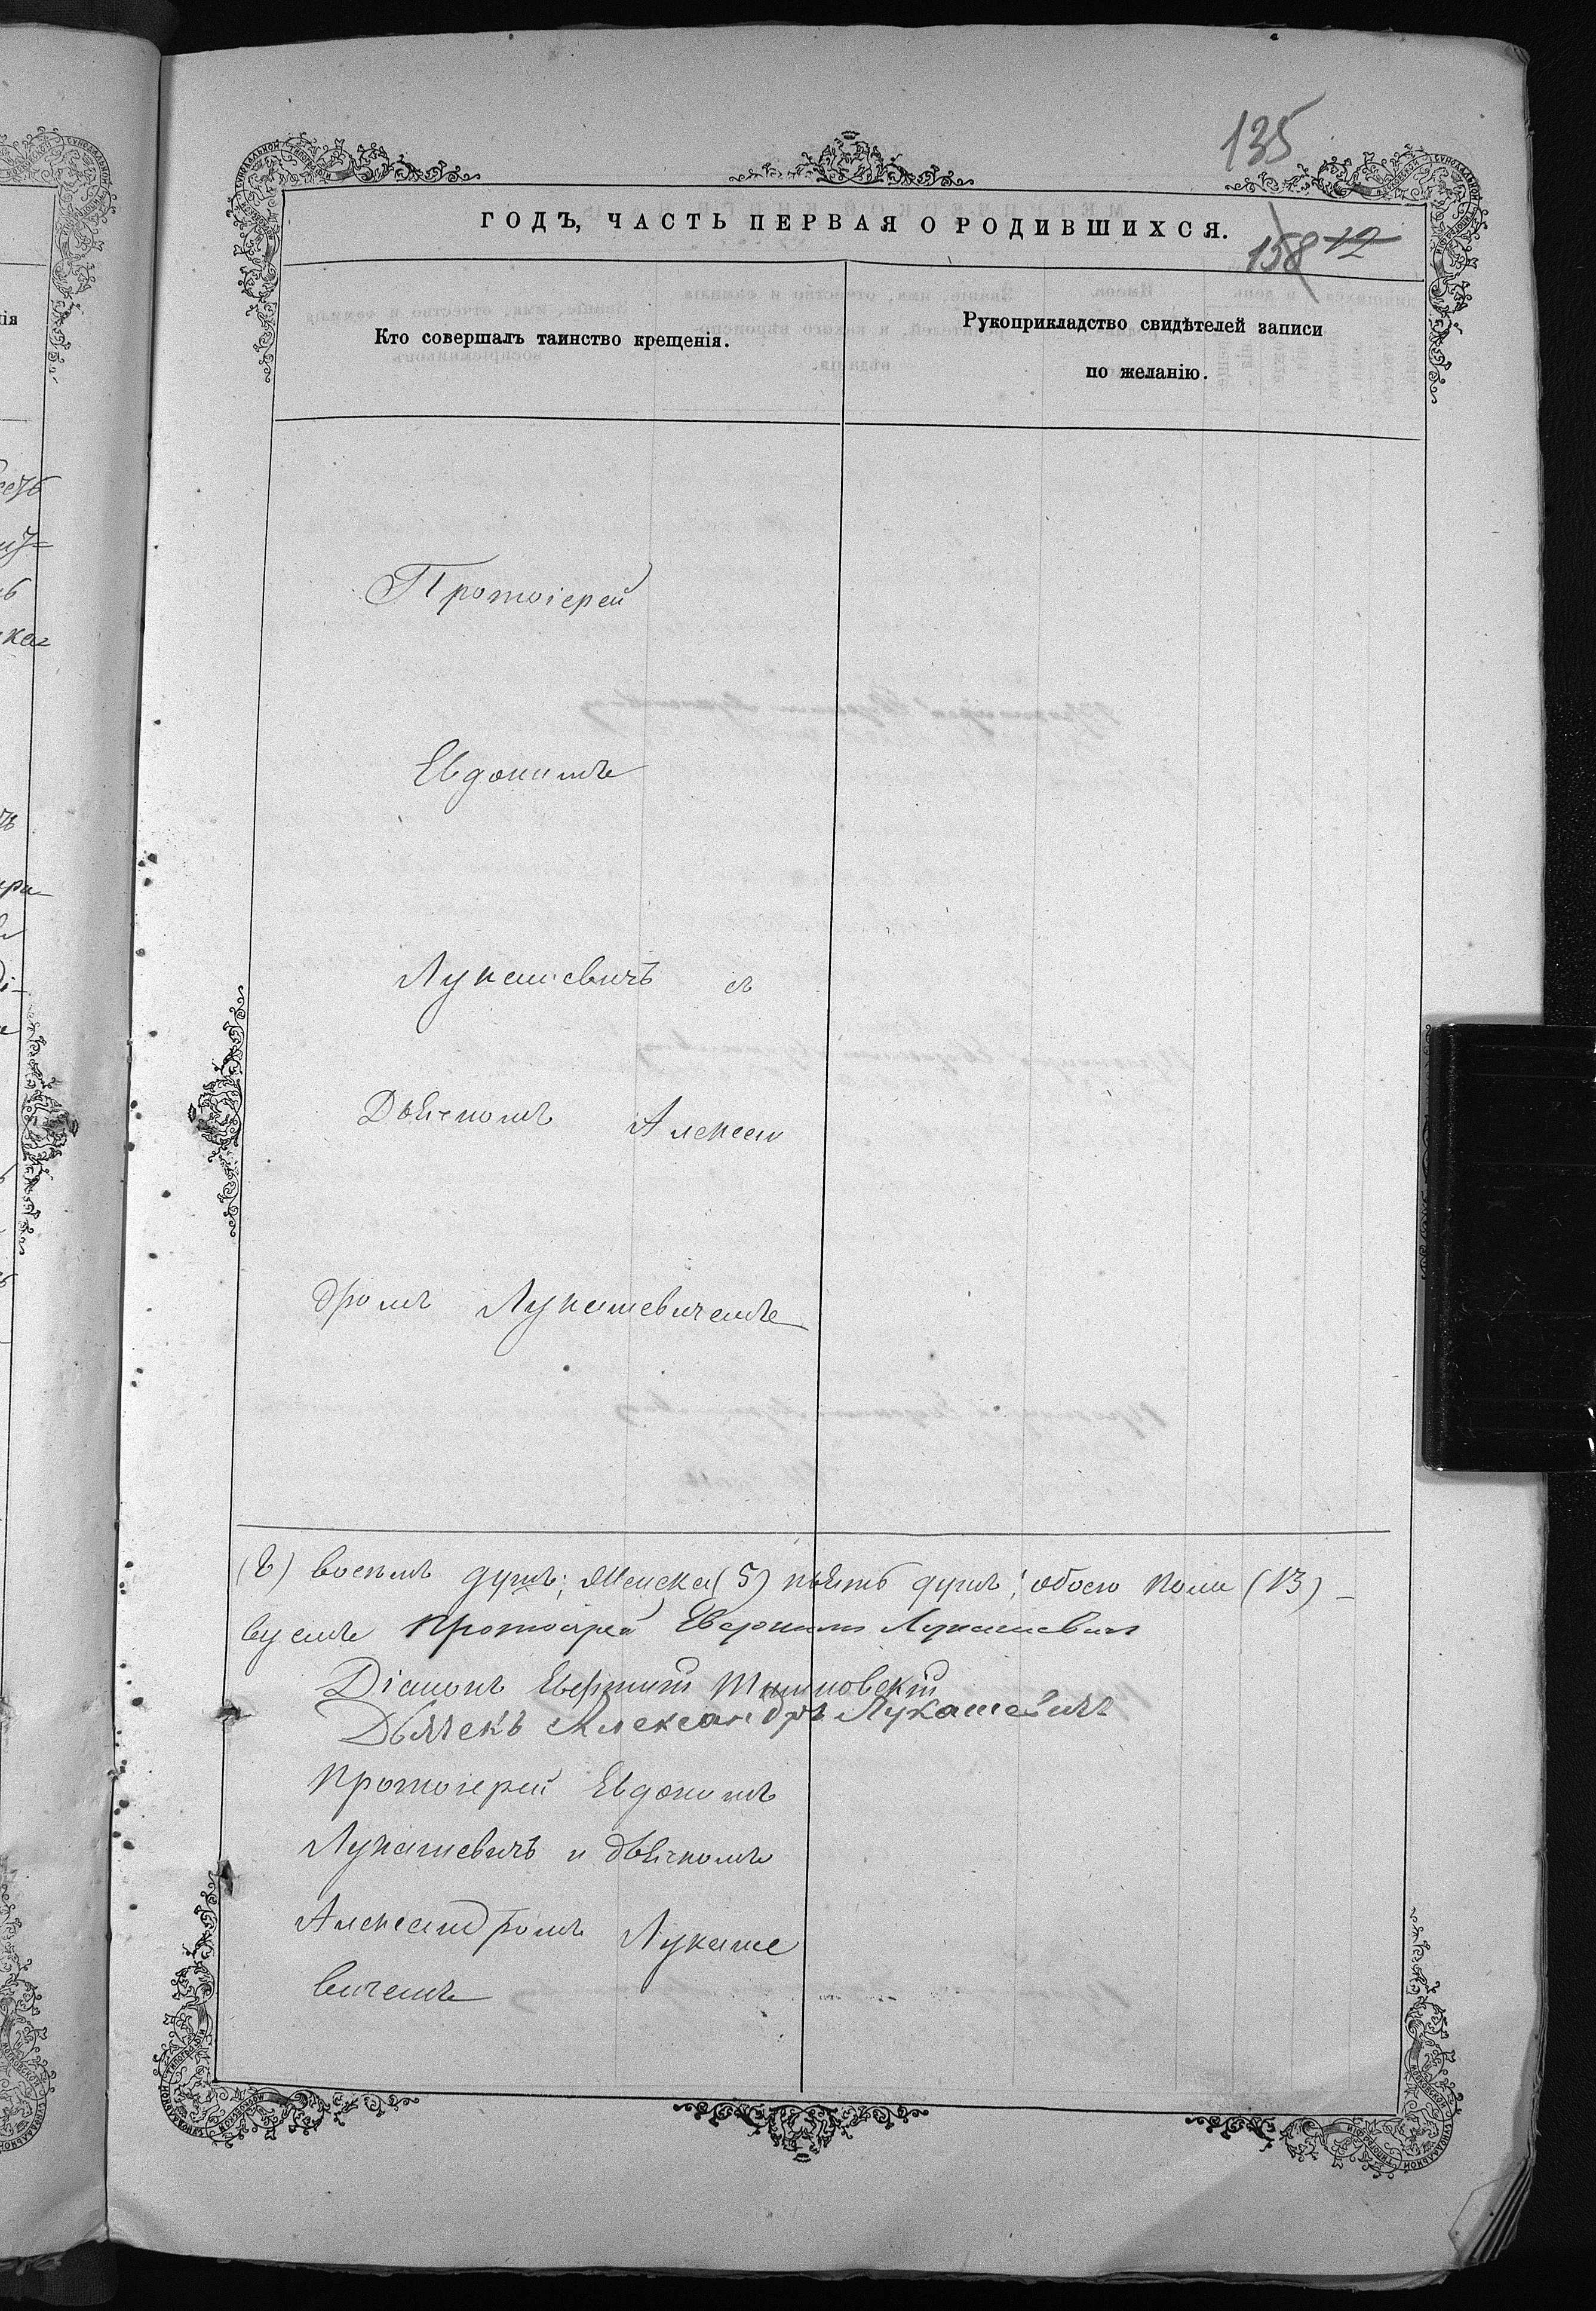 135
ГОДЪ, ЧАСТЬ ПЕРВАЯ О РОДИВШИХСЯ.
158 12
Кто совершалъ таинство крещенія.
Рукоприкладство свидѣтелей записи
по желанію.
Протоіерей
Евдокимъ
Лукашевичъ съ
Дьячкомъ Алексан
дромъ Лукашевичемъ
(8) восемь душъ; Женска (5) пьять душъ; обоего пола (13) –
Протоіерей Евдокимъ Лукашевичъ
Діаконъ
Дьячекъ Александръ Лукашевичъ
Протоіерей Евдокимъ
Лукашевичъ и дьячкомъ
Александромъ Лукаше
вичемъ